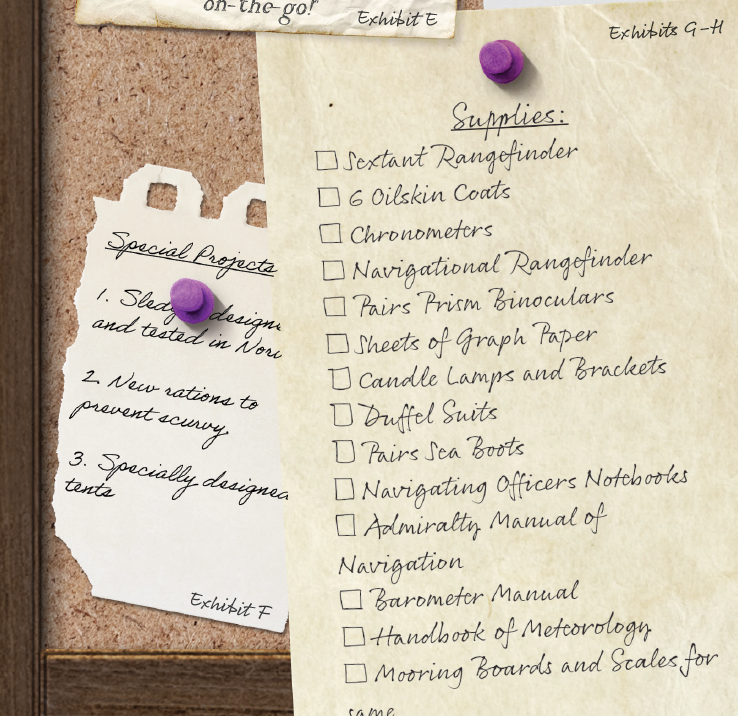 on-the-go!
Exhibit E
Exhibits G-H
Supplies:
Sextant Rangefinder
6 Oilskin Coats
Chronometers
Navigational Rangefinder
Pairs Prism Binoculars
Sheets of Graph Paper
Candle Lamps and Brackets
Duffel Suits
Pairs Sea Boots
Navigating Officers Notebooks
Admiralty Manual of
Navigation
Barometer Manual
Handbook of Meteorology
Mooring Boards and Scales for
same
Special Projects
1.
and tested in
2. New rations to
prevent scurvy
3. Specially designed
tents
Exhibit F